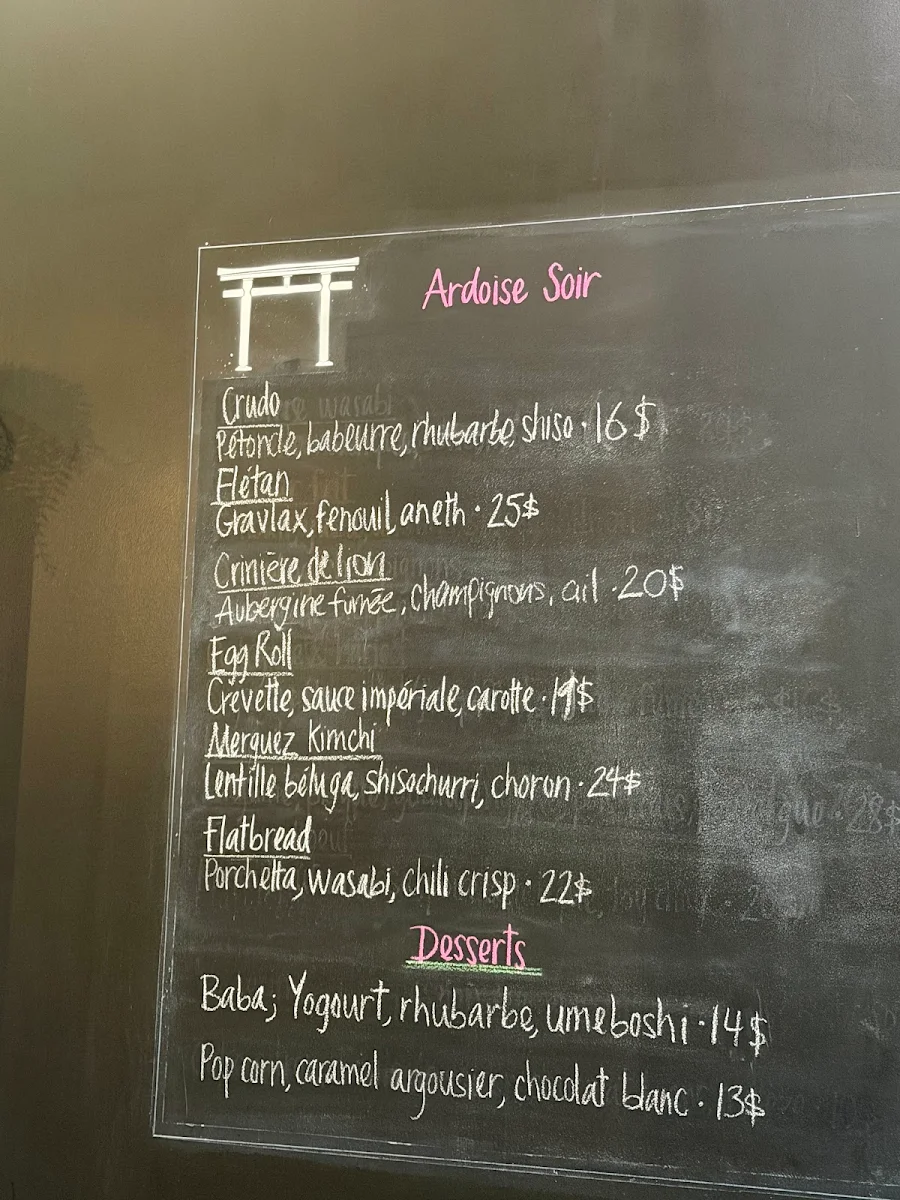 Ardoise Soir
Crudo
Pétoncle, babeurre, rhubarbe, shiso · 16$
Flétan
Gravlax, fenouil, aneth · 25$
Crinière de lion
Aubergine fumée, champignons, ail · 20$
Egg Roll
Crevette, sauce impériale, carotte · 19$
Merguez Kimchi
Lentille béluga, shisochurri, choron · 24$
Flatbread
Porchetta, wasabi, chili crisp · 22$
Desserts
Baba; Yogourt, rhubarbe, umeboshi · 14$
Pop corn, caramel argousier, chocolat blanc · 13$